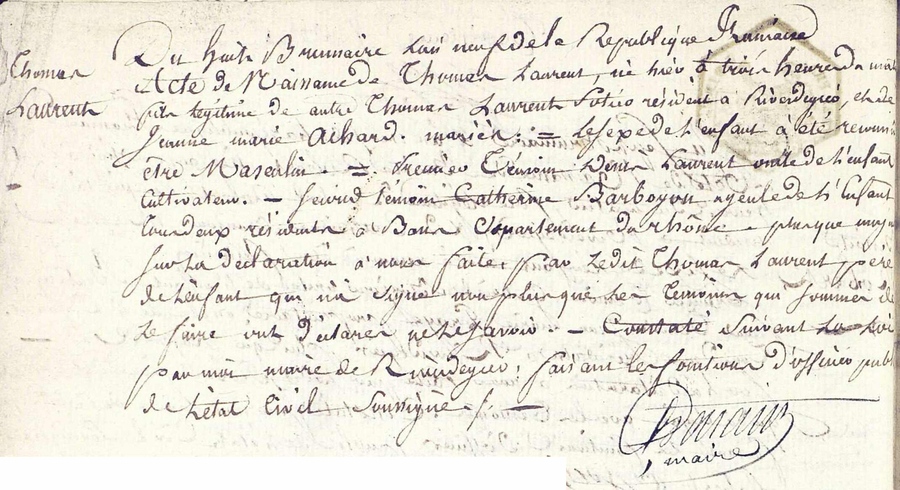 Thomas
Laurent
Du huit Brumaire L'an neuf de la Republique Francaise
Acte de Naissance de Thomas Laurent, né hier à trois heures du
fils legitime de autre Thomas Laurent résident à Riverdegier, et de
Jeanne marie Achard. mariés. = Le sexe de L'enfant à été reconnu
être Masculin. = Premier Témoin Laurent oncle de L'enfant
Cultivateur. - second témoin Catherine Barboyon ayeule de L'Enfant
tous deux résidents à Departement du rhône. plus que majeurs
sur La declaration à nous faite, par Ledit Thomas Laurent père
de L'enfant qui n'a signé non plus que les temoins qui sommés de
Le faire ont declarés ne Le savoir - Constaté suivant La Loi
par moi maire de Rivedegier, faisant les fonctions d'officier publ
de L'état Civil soussigné
maire